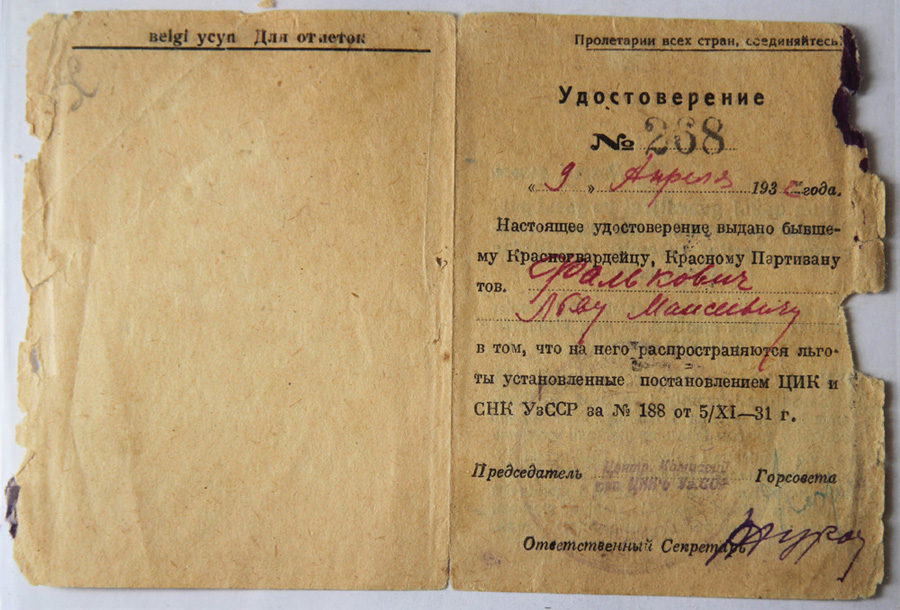 belgi ycyn Для отметок
Пролетарии всех стран, соединяйтесь!
Удостоверение
№ 268
„ 9 „ Апреля 193 года.
Настоящее удостоверение выдано бывше-
му Красногвардейцу, Красному Партизану
тов. Фалькович
Моисеевичу
в том, что на него распространяются льго-
ты установленные постановлением ЦИК и
СНК УзССР за № 188 от 5/XI—31 г.
Председатель Горсовета
Центр. Комиссий
при ЦИК'е УзССР
Ответственный Секретарь